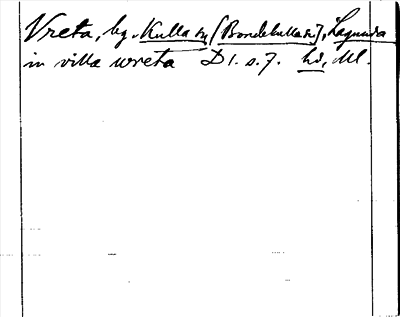 Vreta, by. Kulla sn [Bondkulla sn], Lagunda
in villa wreta D 1. s. 7. hd, Ul.